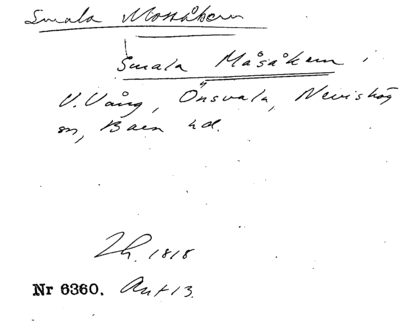 Smala Mossåkern
Smala Måsåkern i
V. Vång, Önsvala, Nevishög
sn, Bara hd.
Lh. 1818
Nr 6360. Akt 13.